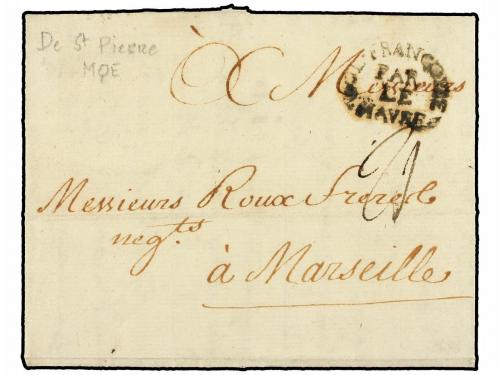 De St Pierre
MQE
À Messieurs
COL. FRANÇOISE
PAR
LE
HAVRE
21
Messieurs Roux Freres
negts
à Marseille